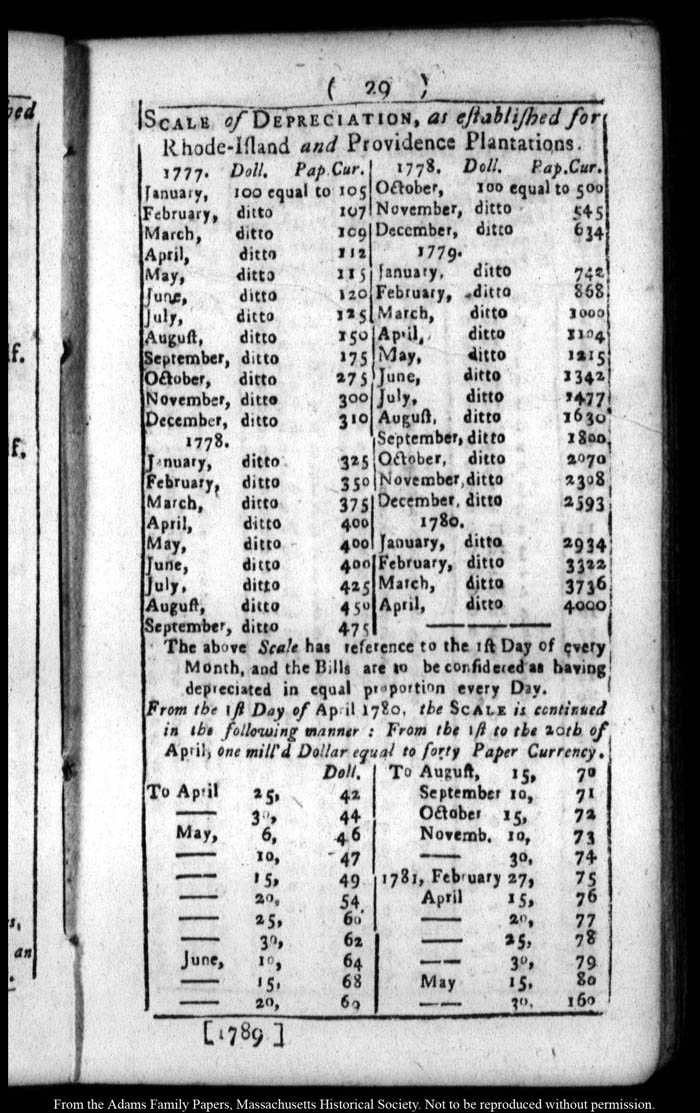 ( 29 )
SCALE of DEPRECIATION, as eſtabliſhed for
Rhode-Iſland and Providence Plantations.
1777. Doll. Pap.Cur.
January, 100 equal to 105
February, ditto 107
March, ditto 109
April, ditto 112
May, ditto 115
June, ditto 120
July, ditto 125
Auguſt, ditto 150
September, ditto 175
October, ditto 275
November, ditto 300
December, ditto 310
1778.
January, ditto 325
February, ditto 350
March, ditto 375
April, ditto 400
May, ditto 400
June, ditto 400
July, ditto 425
Auguſt, ditto 450
September, ditto 475
1778. Doll. Pap.Cur.
October, 100 equal to 500
November, ditto 545
December, ditto 634
1779.
January, ditto 742
February, ditto 868
March, ditto 1000
April, ditto 1104
May, ditto 1215
June, ditto 1342
July, ditto 1477
Auguſt, ditto 1630
September, ditto 1800
October, ditto 2070
November, ditto 2308
December, ditto 2593
1780.
January, ditto 2934
February, ditto 3322
March, ditto 3736
April, ditto 4000
The above Scale has reference to the 1ſt Day of every
Month, and the Bills are to be conſidered as having
depreciated in equal proportion every Day.
From the 1ſt Day of April 1780, the SCALE is continued
in the following manner : From the 1ſt to the 20th of
April, one mill'd Dollar equal to forty Paper Currency.
Doll.
To April 25, 42
— 30, 44
May, 6, 46
— 10, 47
— 15, 49
— 20, 54
— 25, 60
— 30, 62
June, 10, 64
— 15, 68
— 20, 69
To Auguſt, 15, 70
September 10, 71
October 15, 72
Novemb. 10, 73
— 30, 74
1781, February 27, 75
April 15, 76
— 20, 77
— 25, 78
— 30, 79
May 15, 80
— 30, 160
[1789]
an
From the Adams Family Papers, Massachusetts Historical Society. Not to be reproduced without permission.